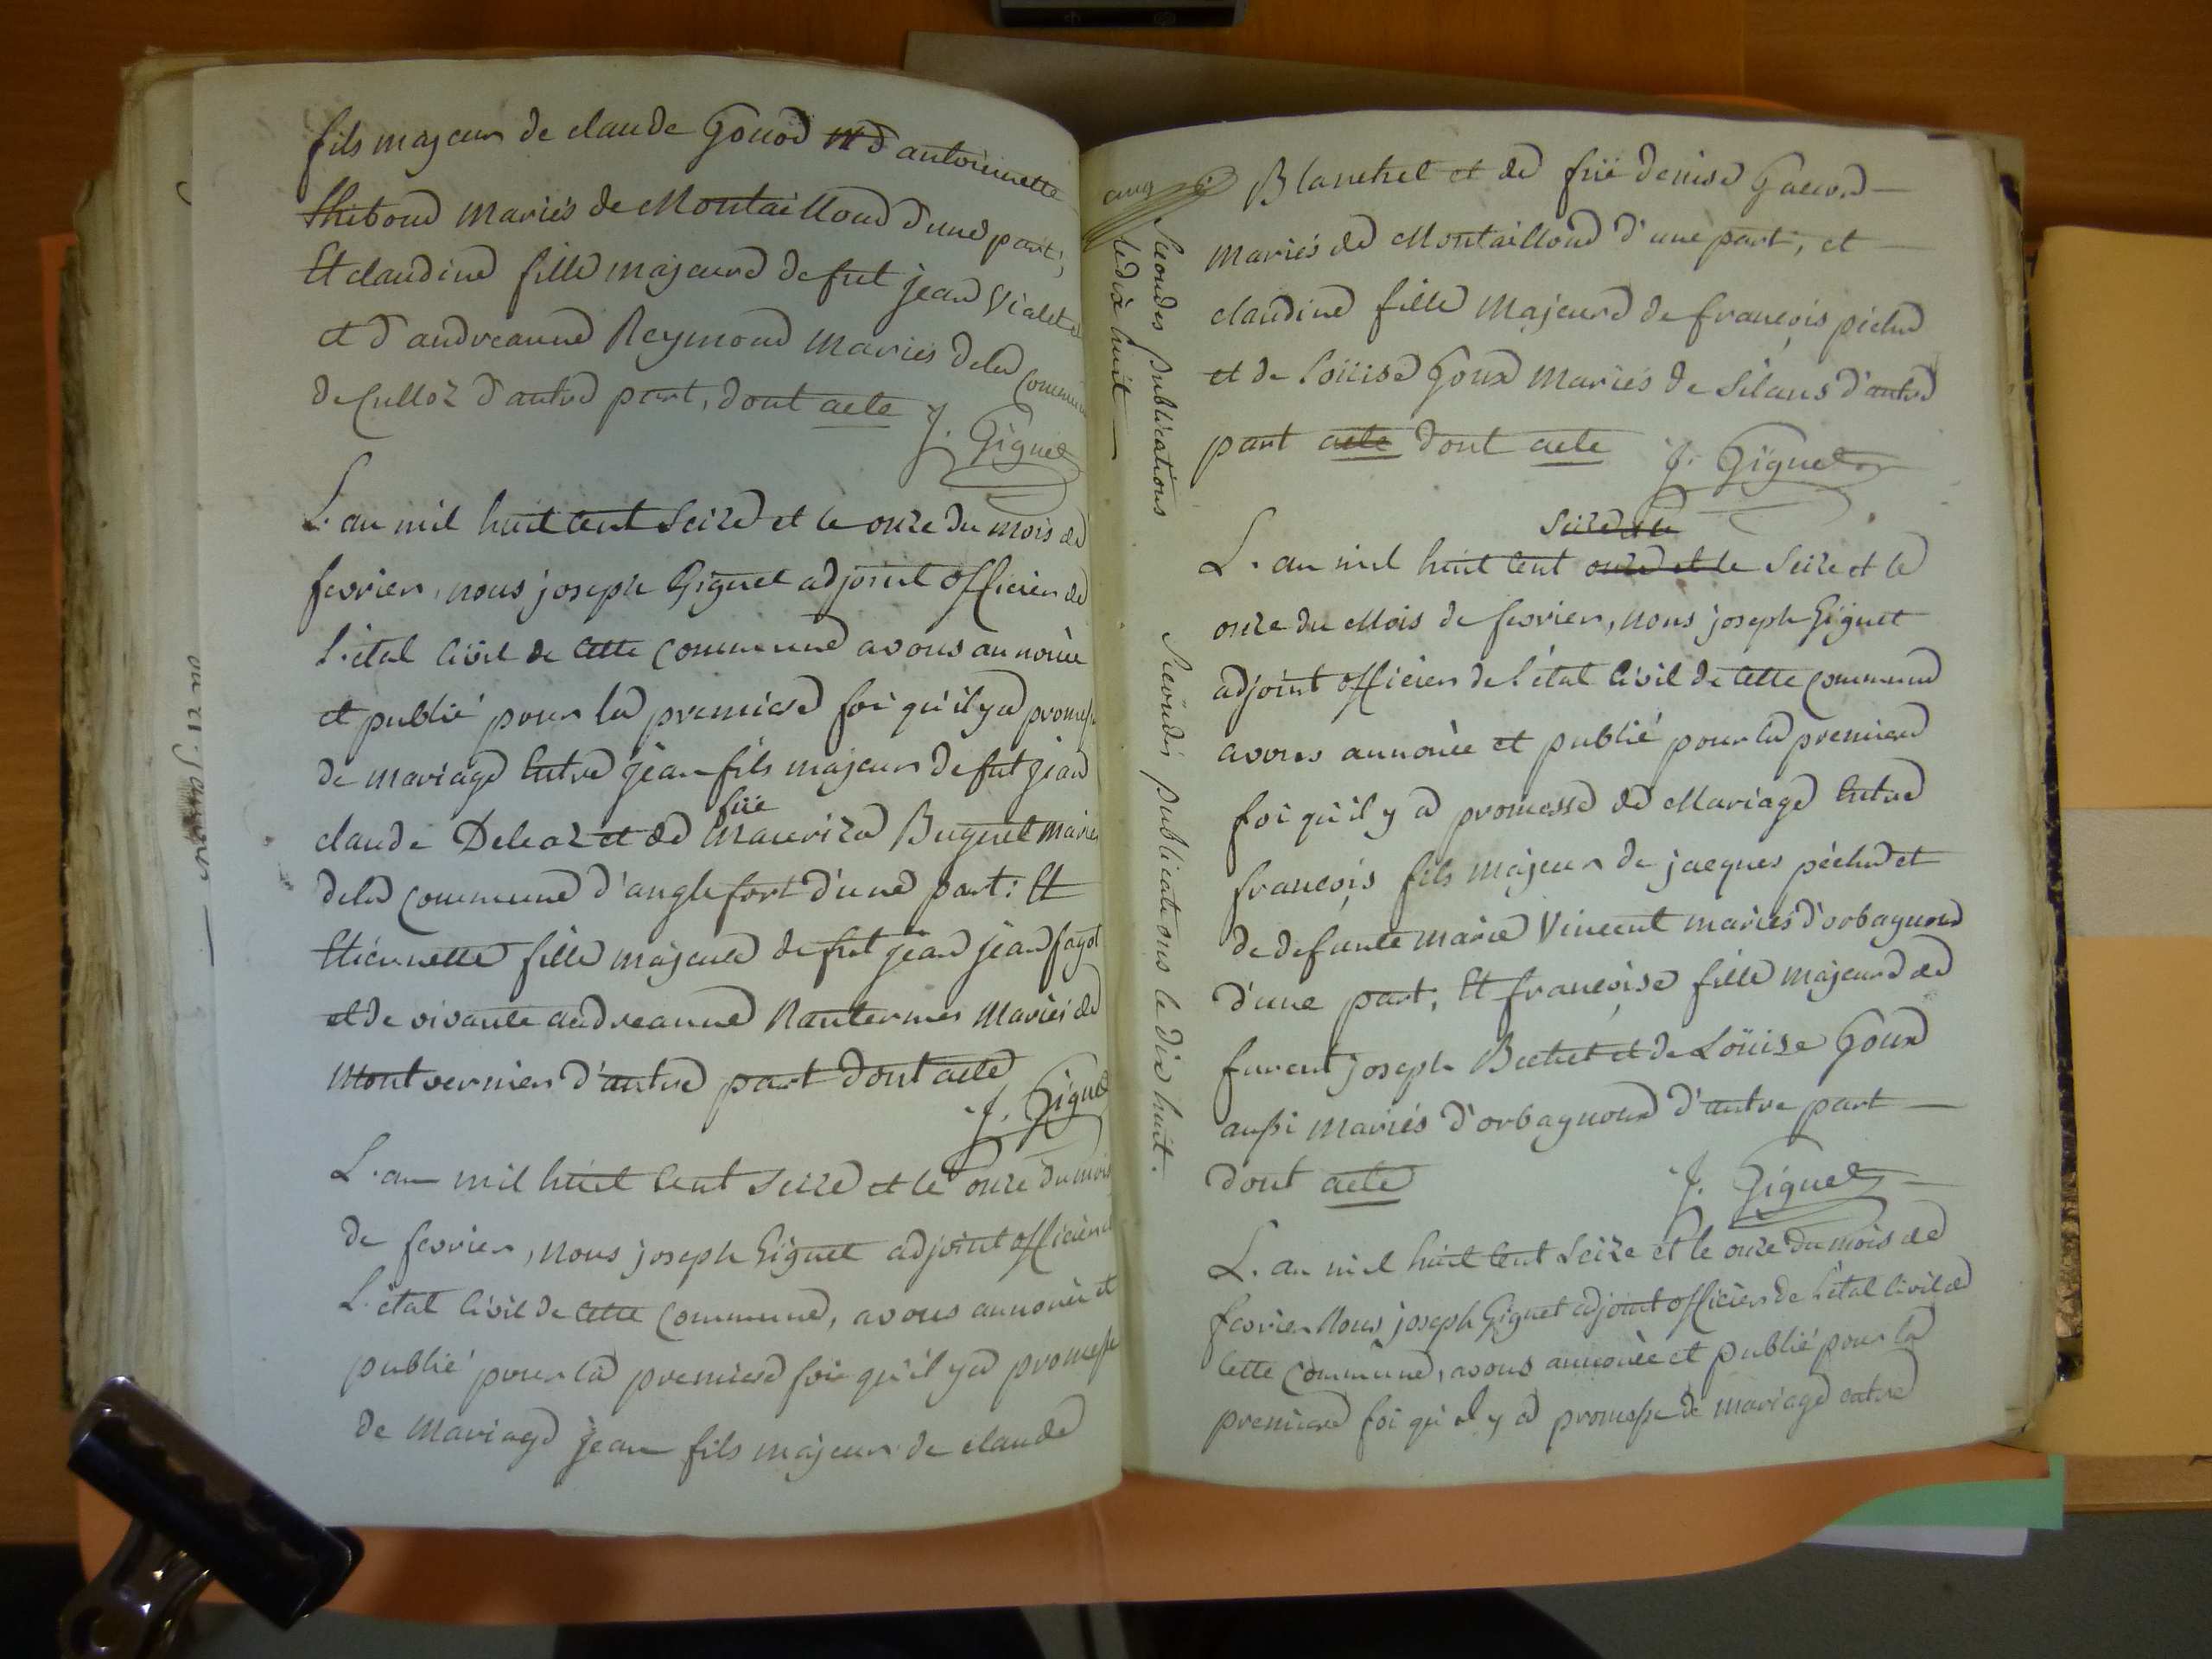 fils majeur de claude Gouod et d antoinette
thiboud mariés de Montailloud d'une part;
Et claudine fille majeure de fut jean Vialet
et d'andreanne Reymond mariés dela commune
de Culloz d'autre part, dont acte
J. Giguet
L'an mil huit cent seize et le onze du mois de
fevrier, nous joseph Giguet adjoint officier de
l'état civil de cette commune avons annoncée
et publié pour la premiere foi qu'il y a promesse
de mariage entre jean fils majeur de fut jean
claude Deleaz et de füe Maurize Buguet mariés
dela commune d'anglefort d'une part: Et
Etiennette fille majeure de fut jean jean fagot
et de vivante andreanne Nantermes mariés de
Montvernier d'autre part dont acte
J. Giguet
L'an mil huit cent seize et le onze du mois
de fevrier, nous joseph Giguet adjoint officier de
l'état civil de cette commune, avons annoncée et
publié pour la premiere foi qu'il y a promesse
de mariage jean fils majeur de claude
Secondes publications
le dix huit
Blanchet et de füe denise
mariés de Montailloud d'une part, et
claudine fille majeure de françois péclud
et de loüise Goux mariés de Silans d'autre
part acte dont acte
J. Giguet
seize et le
L'an mil huit cent onze et le seize et le
onze du Mois de fevrier, nous joseph Giguet
adjoint officier de l'état civil de cette commune
avons annoncée et publié pour la premiere
foi qu'il y a promesse de Mariage entre
françois fils majeur de jacques péclud et
de defunte marie Vincent mariés d'orbagnoud
d'une part, Et françoise fille majeure de
furent joseph Bechet et de Loüise Goux
aussi mariés d'orbagnoud d'autre part
dont acte
J. Giguet
Secondes publications le dix huit.
L'an mil huit cent seize et le onze du mois de
fevrier Nous joseph Giguet adjoint officier de l'état civil de
cette commune, avons annoncée et publié pour la
premiere foi qu'il y a promesse de mariage entre